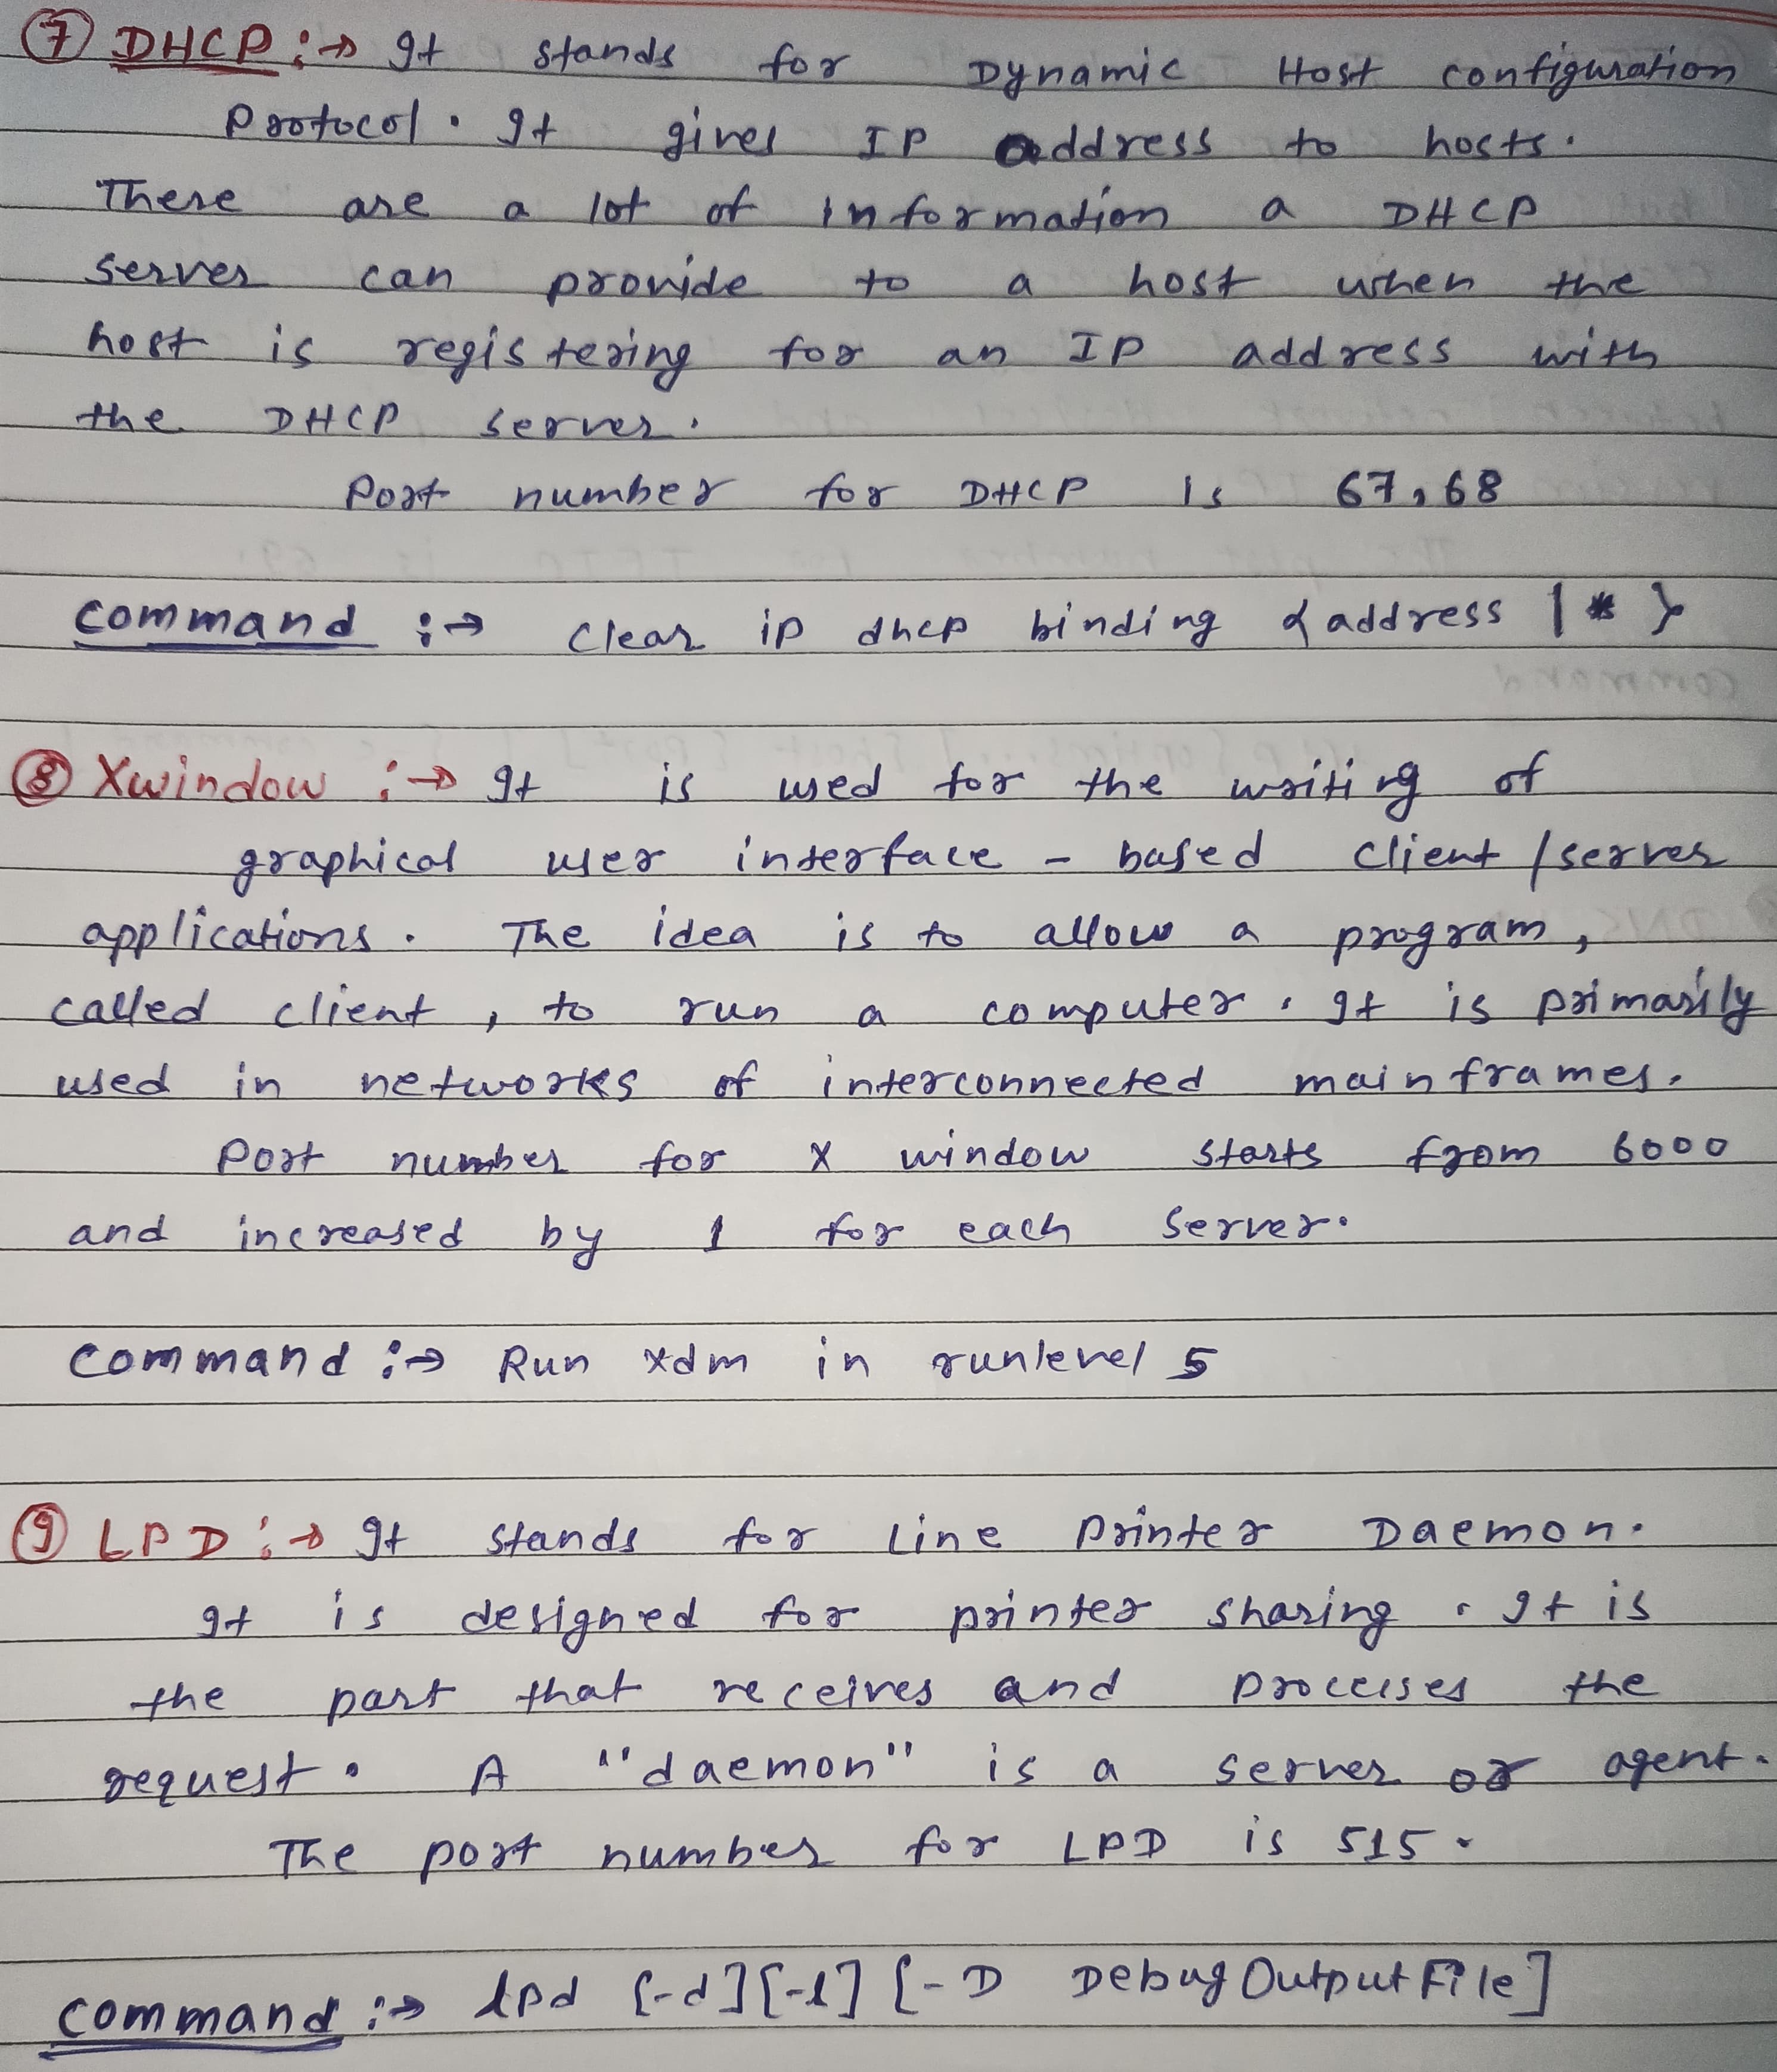 ⑦ DHCP :→ It stands for Dynamic Host configuration
Protocol. It gives IP address to hosts.
There are a lot of information a DHCP
server can provide to a host when the
host is registering for an IP address with
the DHCP server.
Port number for DHCP is 67, 68
Command :→ Clear ip dhcp binding {address | * }
⑧ Xwindow :→ It is used for the writing of
graphical user interface - based client / server
applications. The idea is to allow a program,
called client, to run a computer. It is primarily
used in networks of interconnected mainframes.
Port number for X window starts from 6000
and increased by 1 for each server.
Command :→ Run xdm in runlevel 5
⑨ LPD :→ It stands for Line Printer Daemon.
It is designed for printer sharing. It is
the part that receives and processes the
request. A "daemon" is a server or agent.
The port number for LPD is 515.
Command :→ lpd [-d][-l] [-D DebugOutputFile]